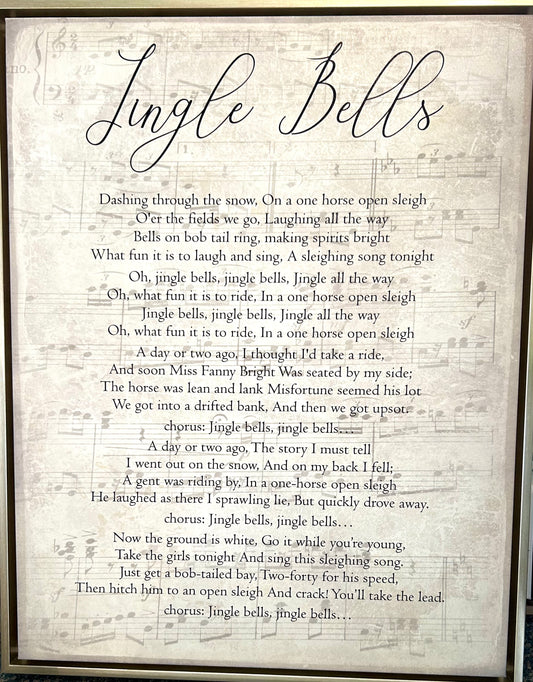 no.
Jingle Bells
Dashing through the snow, On a one horse open sleigh
O'er the fields we go, Laughing all the way
Bells on bob tail ring, making spirits bright
What fun it is to laugh and sing, A sleighing song tonight
Oh, jingle bells, jingle bells, Jingle all the way
Oh, what fun it is to ride, In a one horse open sleigh
Jingle bells, jingle bells, Jingle all the way
Oh, what fun it is to ride, In a one horse open sleigh
A day or two ago, I thought I'd take a ride,
And soon Miss Fanny Bright Was seated by my side;
The horse was lean and lank Misfortune seemed his lot
We got into a drifted bank, And then we got upsot.
chorus: Jingle bells, jingle bells…
A day or two ago, The story I must tell
I went out on the snow, And on my back I fell;
A gent was riding by, In a one-horse open sleigh
He laughed as there I sprawling lie, But quickly drove away.
chorus: Jingle bells, jingle bells…
Now the ground is white, Go it while you're young,
Take the girls tonight And sing this sleighing song.
Just get a bob-tailed bay, Two-forty for his speed,
Then hitch him to an open sleigh And crack! You'll take the lead.
chorus: Jingle bells, jingle bells…